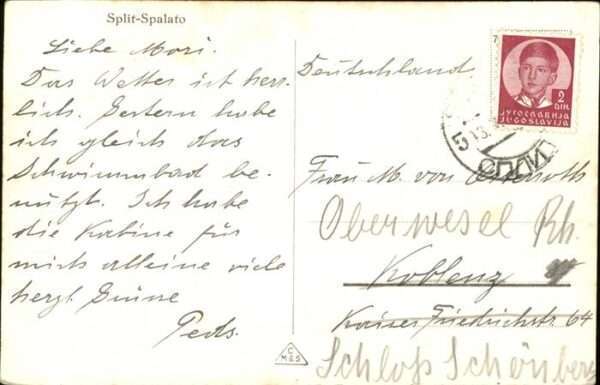 Split-Spalato
Liebe Mori.
Das Wetter ist herr-
lich. Gestern habe
ich gleich das
Schwimmbad be-
nützt. Ich habe
die Kabine für
mich alleine viele
herzl Grüsse
Peds.
Deutschland
2
DIN.
ЈУГОСЛАВИЈА
JUGOSLAVIJA
СПЛИТ
Frau M. von
Oberwesel Rh.
Koblenz
Kaiser Friedrichstr. 64
Schloß Schönberg
C
MES